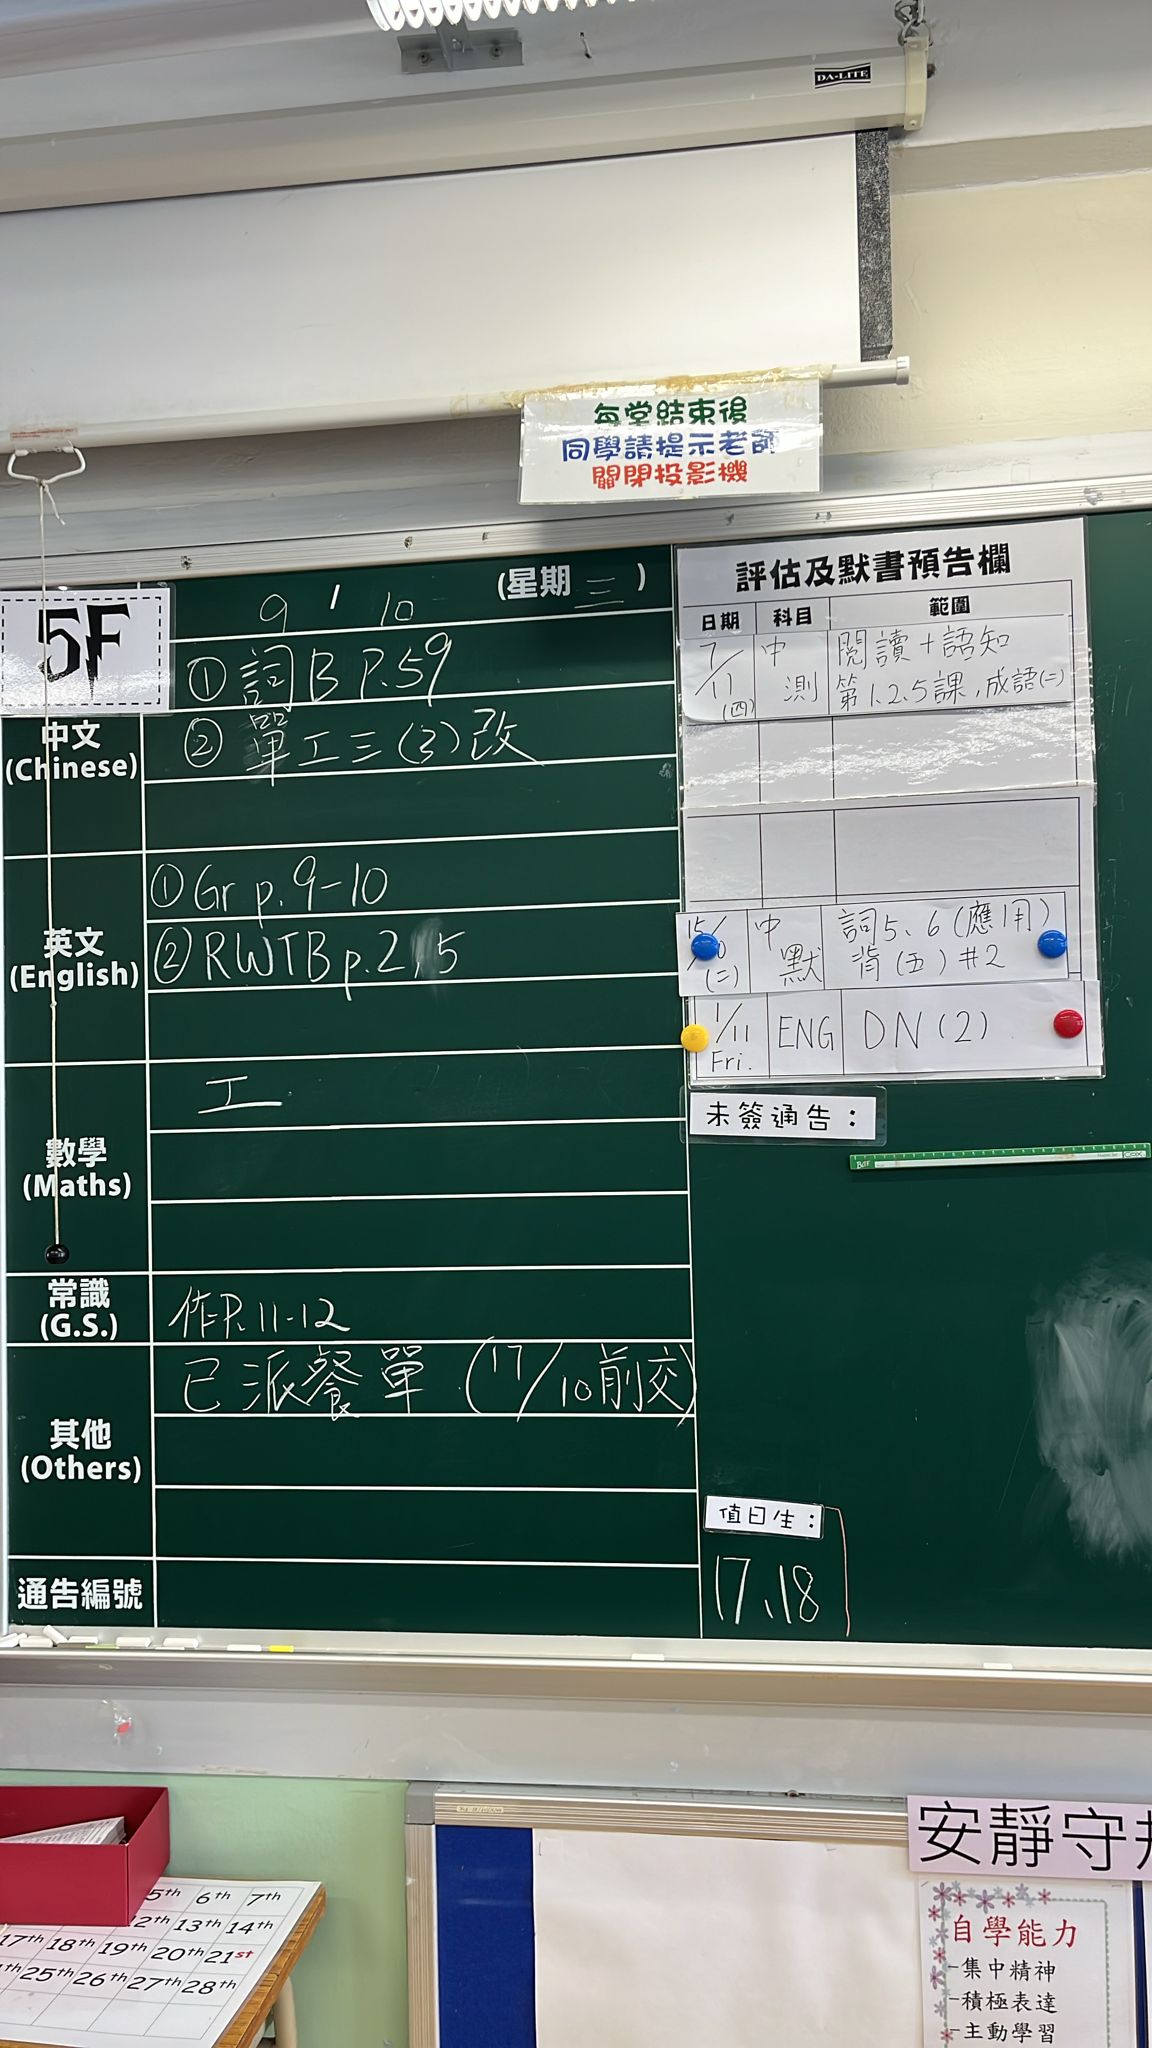 DA-LITE
每堂結束後
同學請提示老師
關閉投影機
5F
9 / 10 (星期 三 )
中文
(Chinese)
① 詞B P.59
② 單工三(3)改
英文
(English)
① Gr p.9-10
② RWTB p.2,5
數學
(Maths)
工
常識
(G.S.)
作P.11-12
其他
(Others)
已派餐單 (17/10前交)
通告編號
評估及默書預告欄
日期 科目 範圍
7/11 (四) 中測 閱讀+語知
第1.2.5課,成語(二)
15/10 (二) 中默 詞5、6(應用)
背(五)#2
1/11 Fri. ENG DN(2)
未簽通告:
值日生:
17、18
5th 6th 7th
12th 13th 14th
17th 18th 19th 20th 21st
25th 26th 27th 28th
安靜守
自學能力
-集中精神
-積極表達
-主動學習